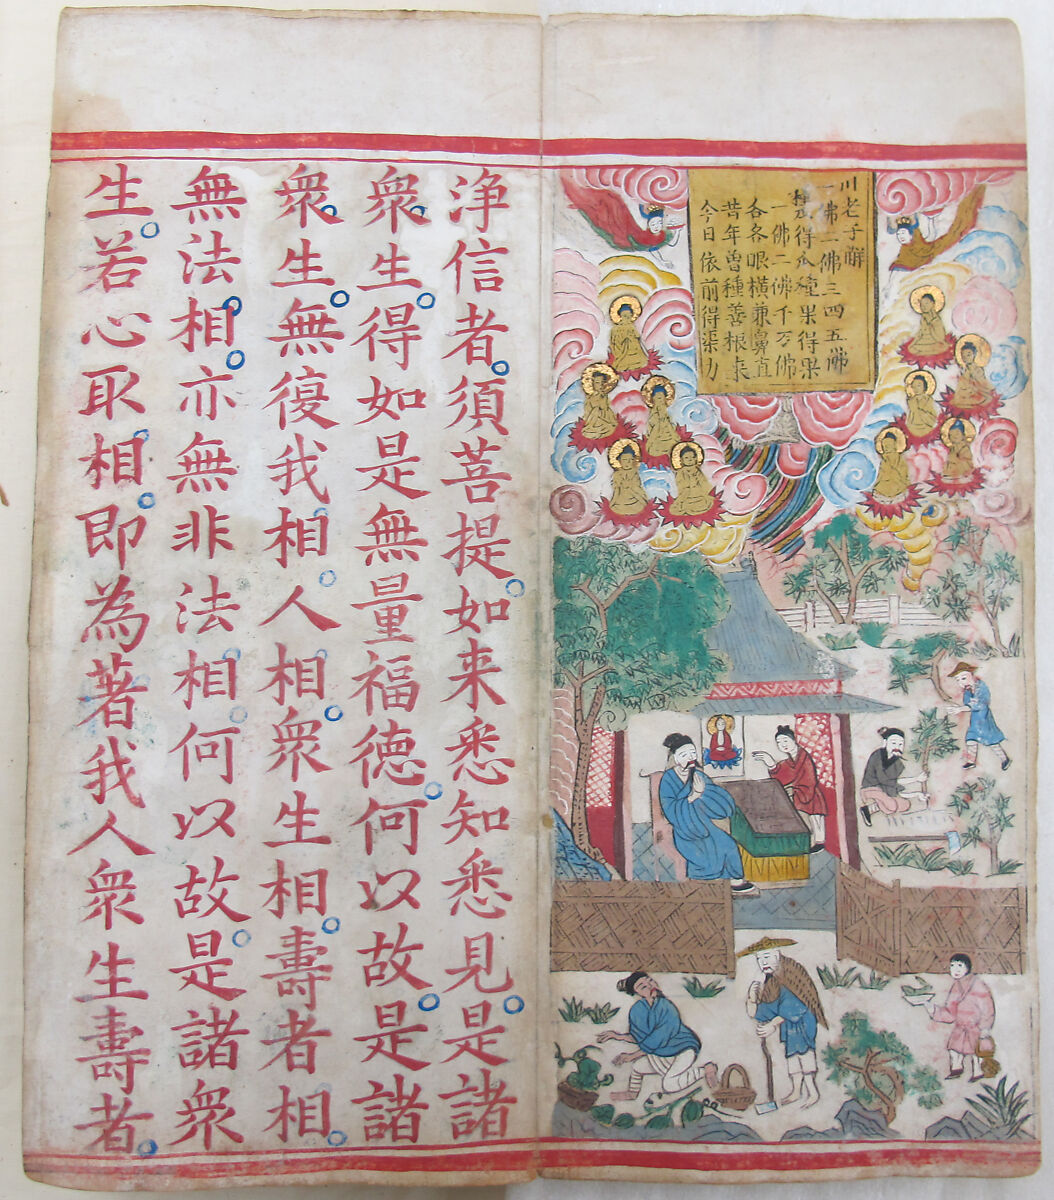 川老子觧
一佛二佛三四五佛
種瓜得瓜種果得果
一佛二佛千万佛
各各眼横兼鼻直
昔年曽種善根来
今日依前得渠力
浄信者須菩提如来悉知悉見是諸
衆生得如是無量福德何以故是諸
衆生無復我相人相衆生相壽者相
無法相亦無非法相何以故是諸衆
生若心取相即為著我人衆生壽者